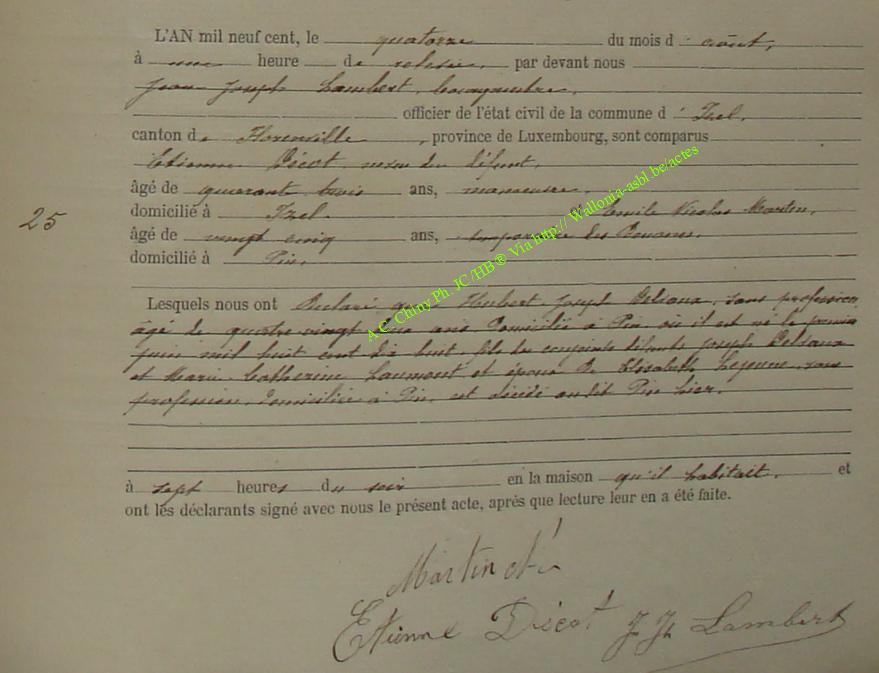 L'AN mil neuf cent, le quatorze du mois d'août,
à une heure de relevée, par devant nous
Jean Joseph Lambert, bourgmestre,
officier de l'état civil de la commune d'Izel,
canton de Florenville, province de Luxembourg, sont comparus
Etienne Décot, neveu du défunt,
âgé de quarant trois ans, manœuvre,
domicilié à Izel, Emile Nicolas Martin,
25
âgé de vingt cinq ans, des Douanes,
domicilié à Pin,
Lesquels nous ont Déclaré que Hubert Joseph Delvaux, sans profession,
âgé de quatre-vingt deux ans, domicilié à Pin, où il est né le premier
juin mil huit cent dix huit, fils des conjoints défunts Joseph Delvaux
et Marie Catherine Laumont et époux de Elisabeth Lejeune, sans
profession, domiciliée à Pin, est décédé audit Pin hier,
à sept heures du soir en la maison qu'il habitait, et
ont les déclarants signé avec nous le présent acte, après que lecture leur en a été faite.
Martin
Etienne Décot J Jh Lambert
A.C. Chiny Ph. JC/HB ® Via http:// Wallonia-asbl.be/actes